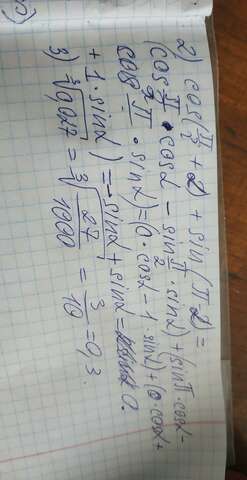 2) cos(π/2 + α) + sin(π α) =
(cos π/2 · cos α − sin π/2 · sin α) + (sin π · cos α −
cos π · sin α) = 0 · cos α − 1 · sin α) + (0 · cos α +
+ 1 · sin α) = − sin α + sin α = 0.
3) ∛0,027 = ∛27/1000 = 3/10 = 0,3.